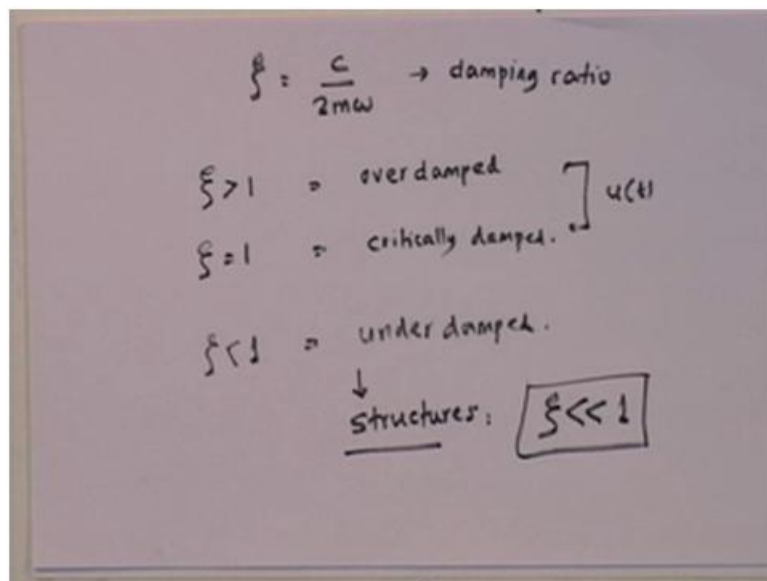 ξ = c/2mω → damping ratio
ξ > 1 = overdamped
ξ = 1 = critically damped. ] u(t)
ξ < 1 = underdamped.
↓
structures: ξ << 1